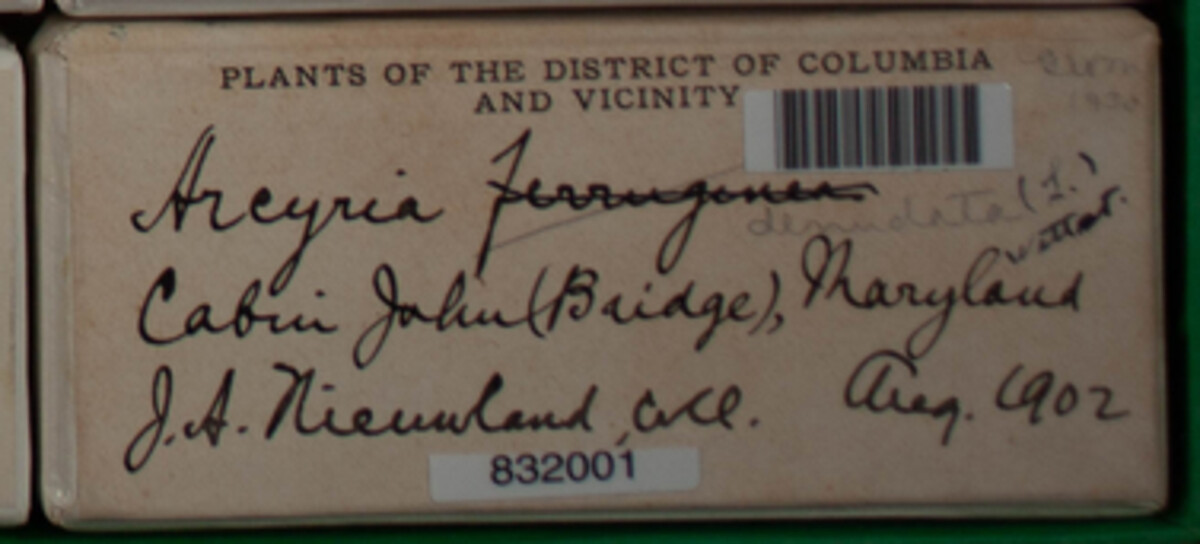 PLANTS OF THE DISTRICT OF COLUMBIA
AND VICINITY
Arcyria ferruginea
denudata (L.)
Wettst.
Cabin John (Bridge), Maryland
J. A. Nieuwland, coll. Aug. 1902
832001